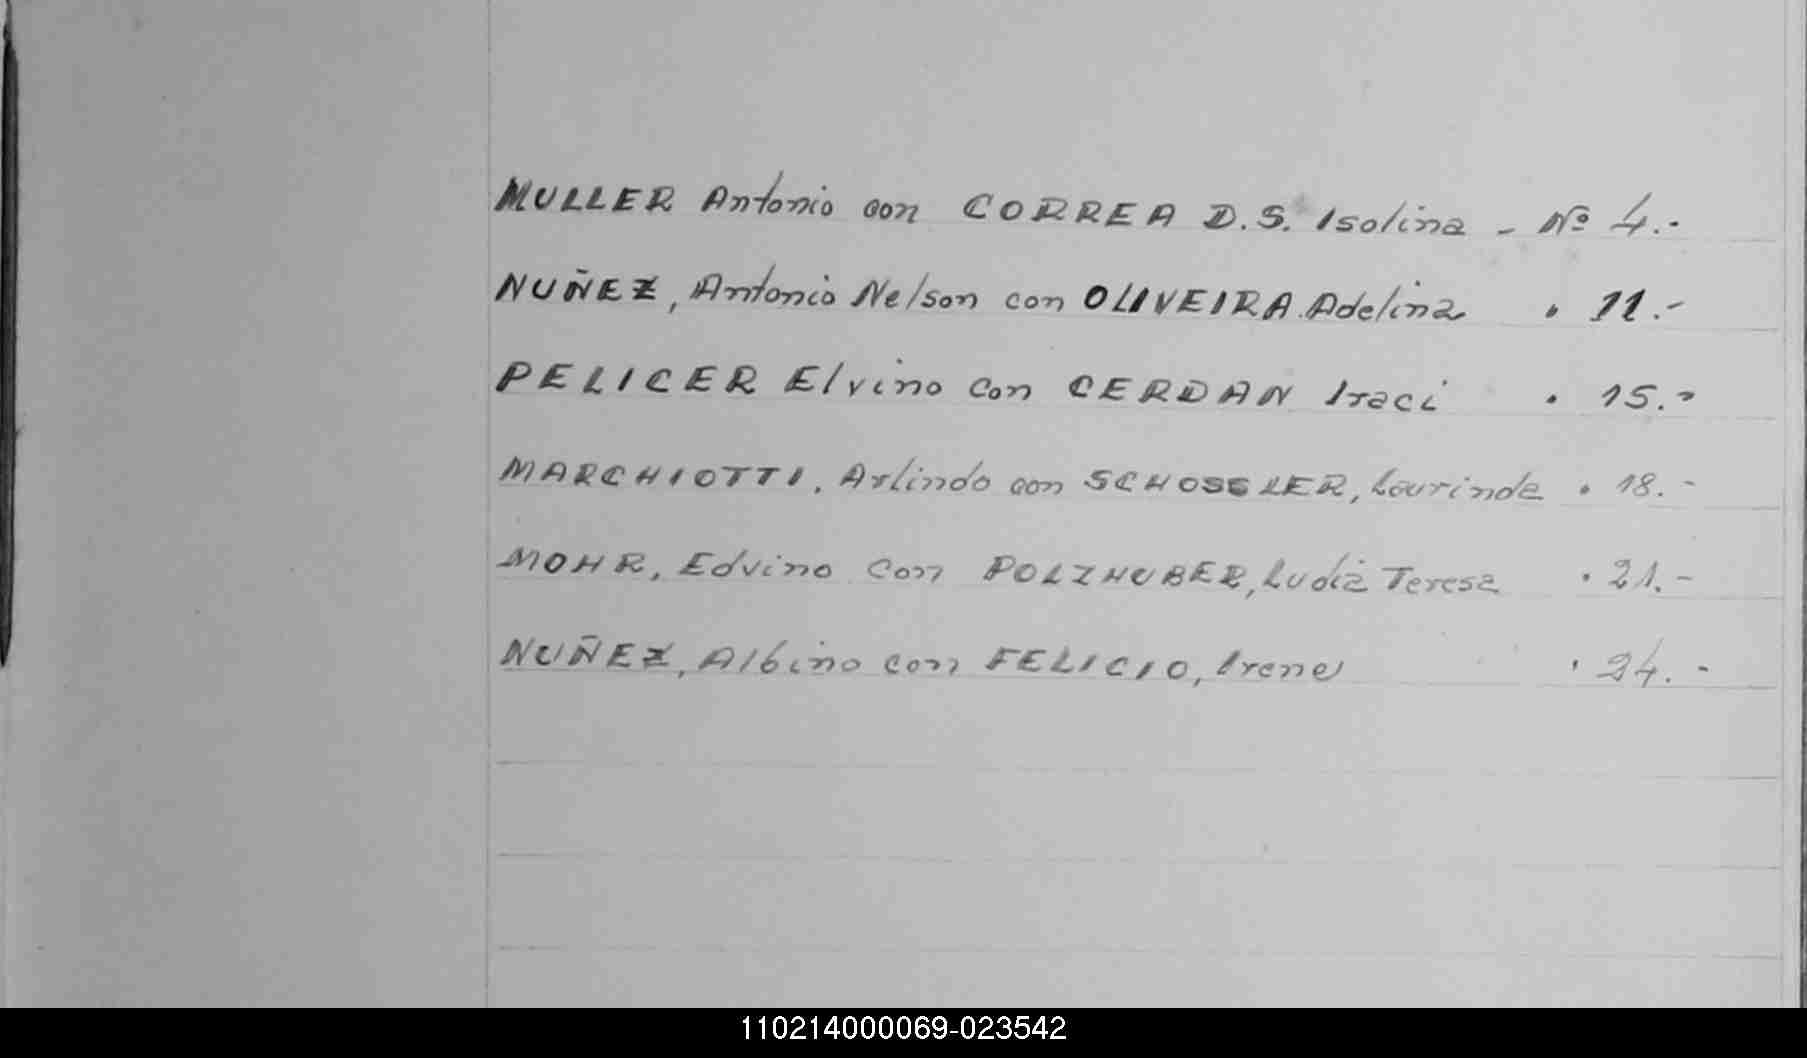 MULLER Antonio con CORREA D.S. Isolina - Nº 4.-
NUÑEZ, Antonio Nelson con OLIVEIRA Adelina " 11.-
PELICER Elvino con CERDAN Iraci " 15.-
MARCHIOTTI, Arlindo con SCHOSSLER, Laurinda " 18.-
MOHR, Edvino con POLZHUBER, Ludia Teresa " 21.-
NUÑEZ, Albino con FELICIO, Irene " 24.-
110214000069-023542